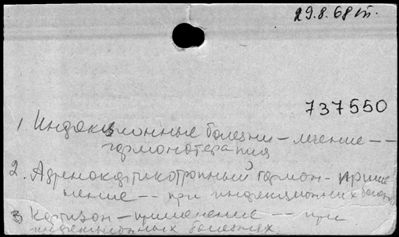 29.8.68 гп.
737550
1 Инфекционные болезни – лечение –
гормонотерапия
2. Адренокортикотропный гормон – приме
нение – – при инфекционных болезн
3 Кортизон – применение – – при
инфекционных болезнях